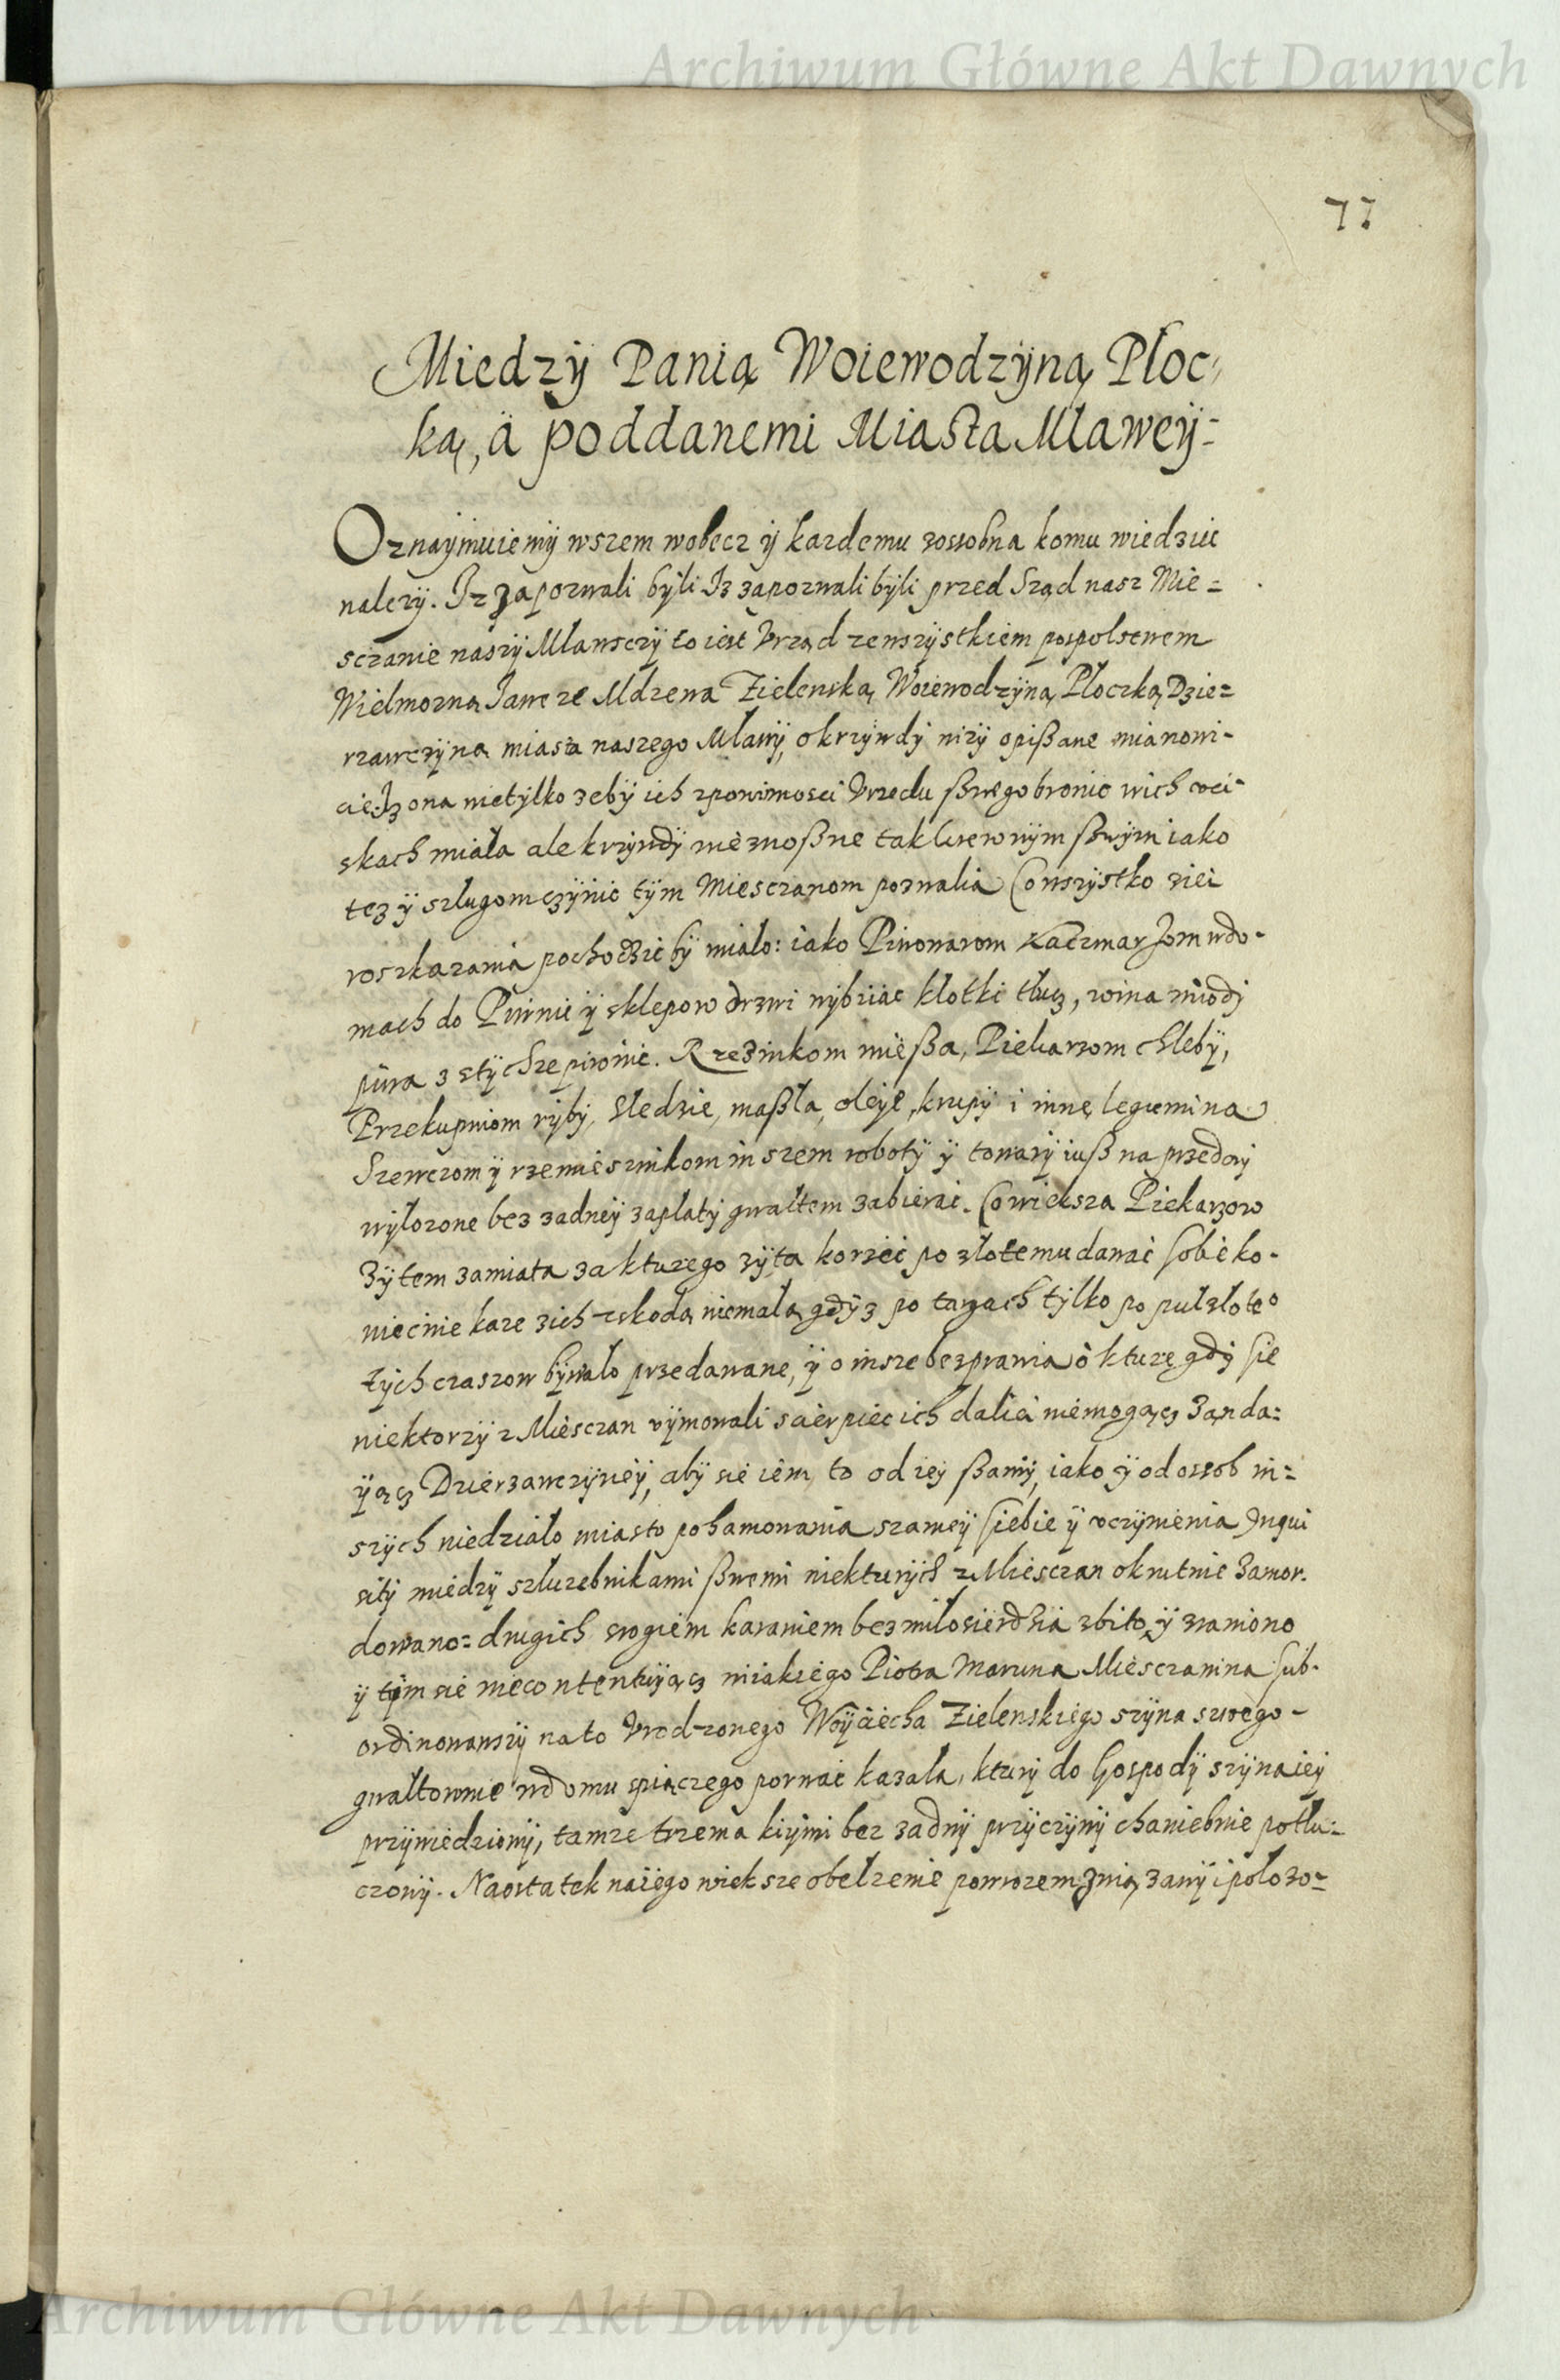 Archiwum Główne Akt Dawnych
77
Miedzÿ Panią Woiewodzÿną Płoc-
ką, ä poddanemi Miasta Mławeÿ-
Oznaÿmuiemÿ wszem wobecz ÿ kazdemu zossobna komu wiedziec
nalezÿ. Iz zapozwali bÿli Iz zapozwali bÿli przed Sząd nasz Mie=
sczanie naszÿ Mławsczÿ to iest Vrząd zewszÿstkiem pospolstwem
Wielmozną Zielenską Woiewodzÿną Płoczką Dzie=
rzawczÿną miasta naszego Mławÿ, o krzÿwdÿ nizÿ opißane mianowi-
cie: Iz ona nietÿlko zebÿ ich zpowinnosci Vrzedu ßwego bronic wich vci-
skach miała ale krzÿwdÿ nieznoßne tak krewnÿm ßwÿm iako
tez ÿ szlugom czÿnic tÿm Miesczanom pozwalia Co wszÿstko ziei
roszkazania pochodzic bÿ miało: iako Piwowarom Kaczmarzom wdo-
mach do Piwnic ÿ sklepow drzwi wÿbiiac kłotki tłucz, wina miodÿ
piwa z stÿch ze piwnic. Rzeznikom mießa, Piekarzom chlebÿ,
Przekupniom rÿbÿ, sledzie, maßła, oleÿe, krupÿ i inne legumina
Szewczom ÿ rzemiesznikom inszem robotÿ ÿ towarÿ iuß na przedaÿ
wÿlozone bez zadneÿ zapłatÿ gwałtem zabierac. Cowieksza Piekarzow
Zÿtem zamiata za kturego zÿta korzec po złotemu dawac sobie ko-
niecnie kaze zich szkodą niemałą gdÿz po targach tÿlko po pułzłoteo
tÿch czaszow bÿwało przedawane, ÿ o insze bezprawia o kture gdÿ sie
niektorzÿ z Miesczan vÿmowali scierpiec ich daliei niemogącz Ząda=
ÿącz Dzierzawczÿneÿ, abÿ sie iem to od ieÿ ßamÿ, iako ÿ od ossob in=
szÿch niedziało miasto pohamowania szameÿ siebie ÿ vczÿnienia Inqui
sitÿ miedzÿ szłuzebnikami ßwemi niekturÿch z Miesczan okrutnie Zamor-
dowano= drugich srogiem karaniem bez miłosierdzia zbito ÿ zraniono
ÿ tÿm sie niecontentuÿącz niiakiego Piotra Maruna Miesczanina sub-
ordinowawszÿ na to Vrodzonego Woÿciecha Zielenskiego szÿna swego-
gwałtownie wdomu spiączego porwac kazała, kturÿ do Gospodÿ szÿna ieÿ
przÿwiedzionÿ, tamze trzema kiÿmi bez zadnÿ przÿczÿnÿ chaniebnie potłu=
czonÿ. Naostatek na iego wieksze obelzenie powrozem związanÿ i połozo=
Archiwum Główne Akt Dawnych